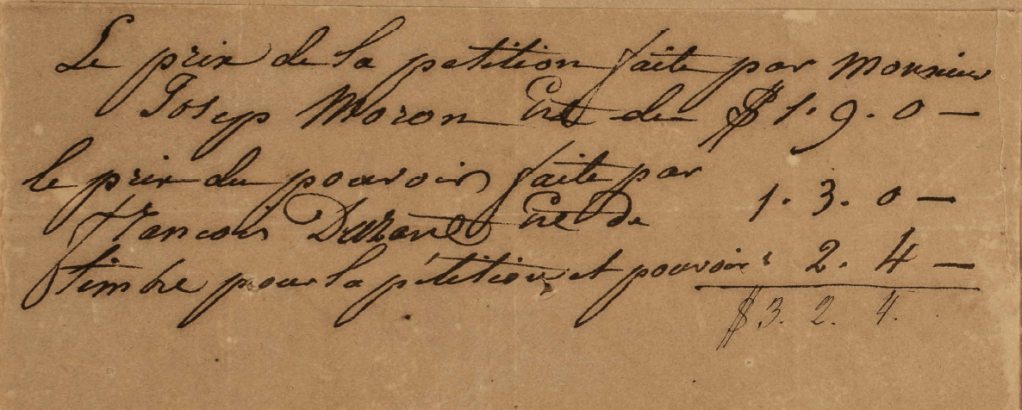 Le prix de la petition faite par Monsieur
Josep Moron Est du $ 1. 9. 0 —
le prix du pouvoir faite par
francois Durand Est De 1. 3. 0 —
timbre pour la pétition et pouvoir 2. 4 —
$ 3. 2. 4.